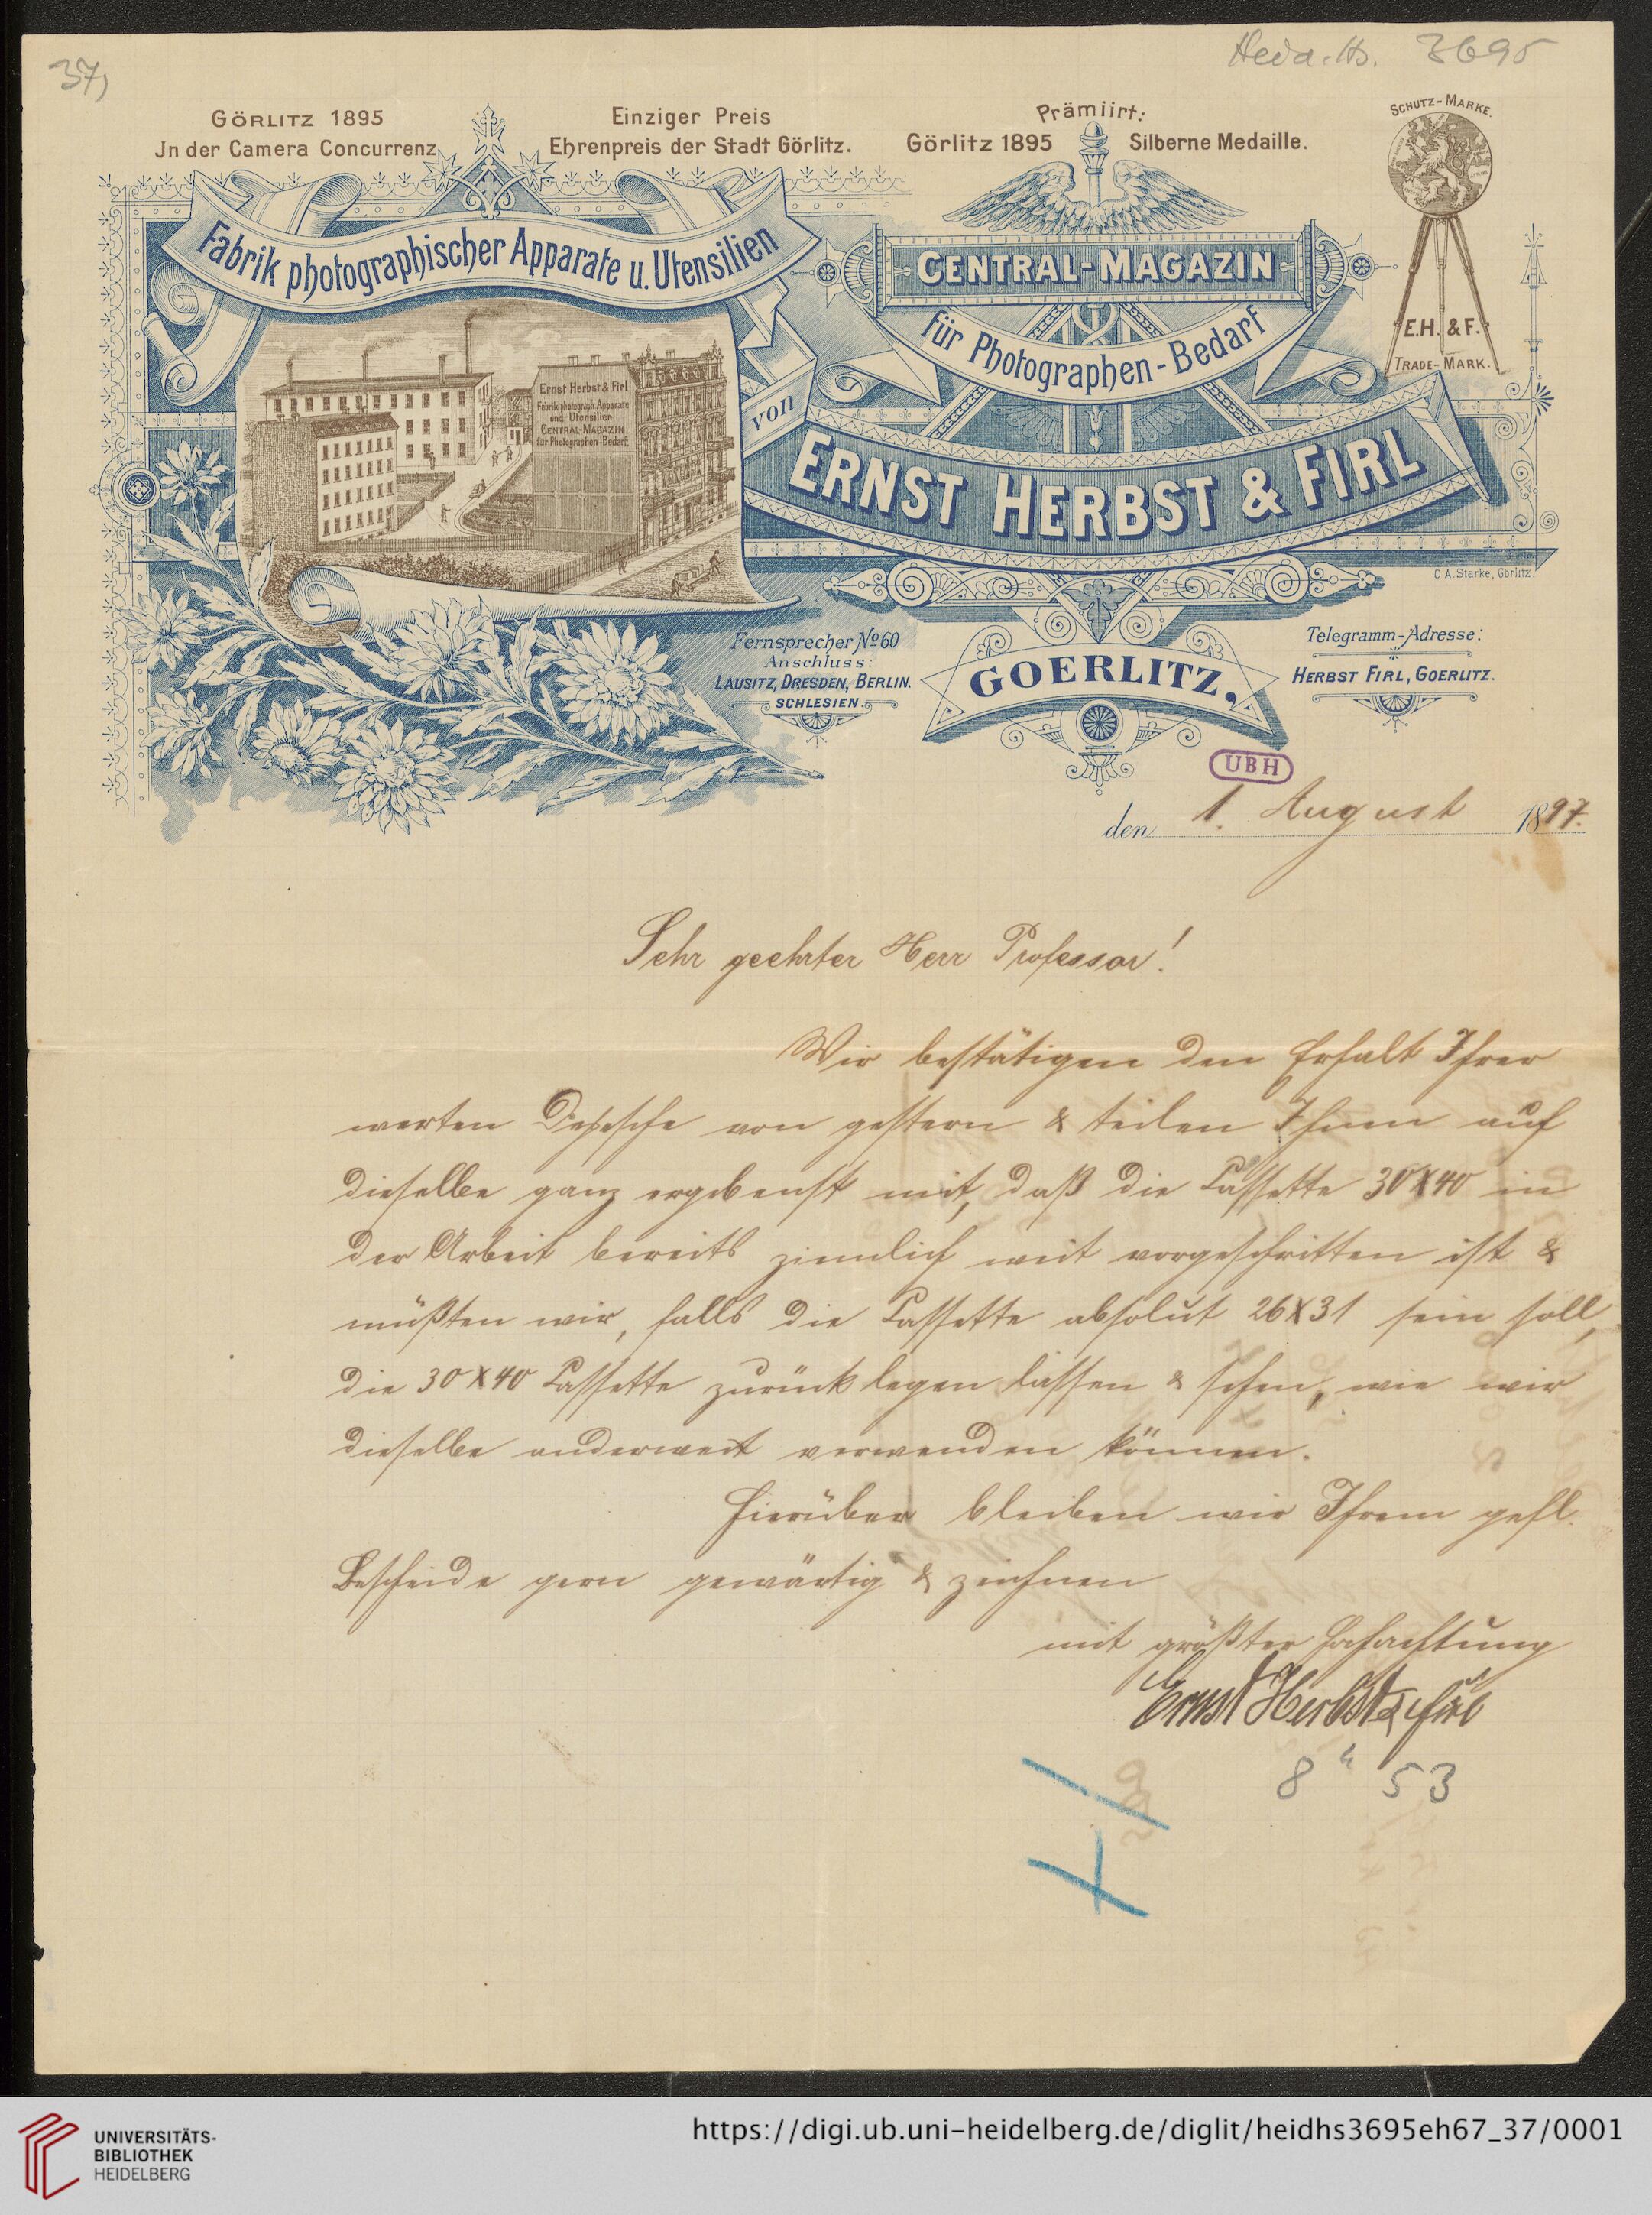 37)
Heid. Hs. 3695
GÖRLITZ 1895
Jn der Camera Concurrenz
Einziger Preis
Ehrenpreis der Stadt Görlitz.
Prämiirt:
Görlitz 1895 Silberne Medaille.
SCHUTZ-MARKE.
E.H. & F.
TRADE-MARK.
Fabrik photographischer Apparate u. Utensilien
CENTRAL-MAGAZIN
für Photographen-Bedarf
Ernst Herbst & Firl
Fabrik photograph. Apparate
und Utensilien
CENTRAL-MAGAZIN
für Photographen-Bedarf.
von
ERNST HERBST & FIRL
C. A. Starke, Görlitz.
Fernsprecher No 60
Anschluss:
LAUSITZ, DRESDEN, BERLIN.
SCHLESIEN.
GOERLITZ,
Telegramm-Adresse:
HERBST FIRL, GOERLITZ.
UBH
den 1. August 1897.
Sehr geehrter Herr Professor!
Wir bestätigen den Erhalt Ihrer
werten Depesche von gestern & teilen Ihnen auf
dieselbe ganz ergebenst mit, daß die Cassette 30X40 in
der Arbeit bereits ziemlich weit vorgeschritten ist &
müßten wir, falls die Cassette absolut 26X31 sein soll,
die 30X40 Cassette zurück legen lassen & sehen, wie wir
dieselbe anderweit verwenden können.
Hierüber bleiben wir Ihrem gefl.
Bescheide gern gewärtig & zeichnen
mit größter Hochachtung
Ernst Herbst & Firl
8 h 53
UNIVERSITÄTS-
BIBLIOTHEK
HEIDELBERG
https://digi.ub.uni-heidelberg.de/diglit/heidhs3695eh67_37/0001